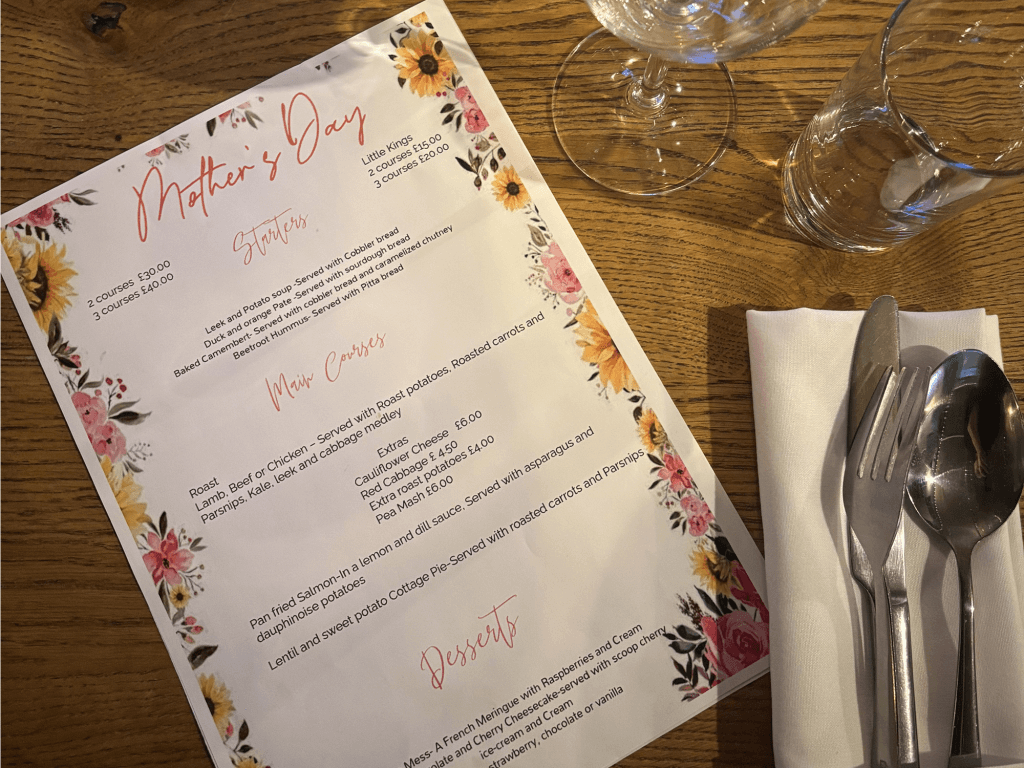 Mother's Day
Little Kings
2 courses £15.00
3 courses £20.00
2 courses £30.00
3 courses £40.00
Starters
Leek and Potato soup -Served with Cobbler bread
Duck and orange Pate -Served with sourdough bread
Baked Camembert- Served with cobbler bread and caramelized chutney
Beetroot Hummus- Served with Pitta bread
Main Courses
Roast
Lamb, Beef or Chicken – Served with Roast potatoes, Roasted carrots and
Parsnips, Kale, leek and cabbage medley
Extras
Cauliflower Cheese £6.00
Red Cabbage £ 4.50
Extra roast potatoes £4.00
Pea Mash £6.00
Pan fried Salmon-In a lemon and dill sauce, Served with asparagus and
dauphinoise potatoes
Lentil and sweet potato Cottage Pie-Served with roasted carrots and Parsnips
Desserts
Mess- A French Meringue with Raspberries and Cream
olate and Cherry Cheesecake-served with scoop cherry
ice-cream and Cream
strawberry, chocolate or vanilla